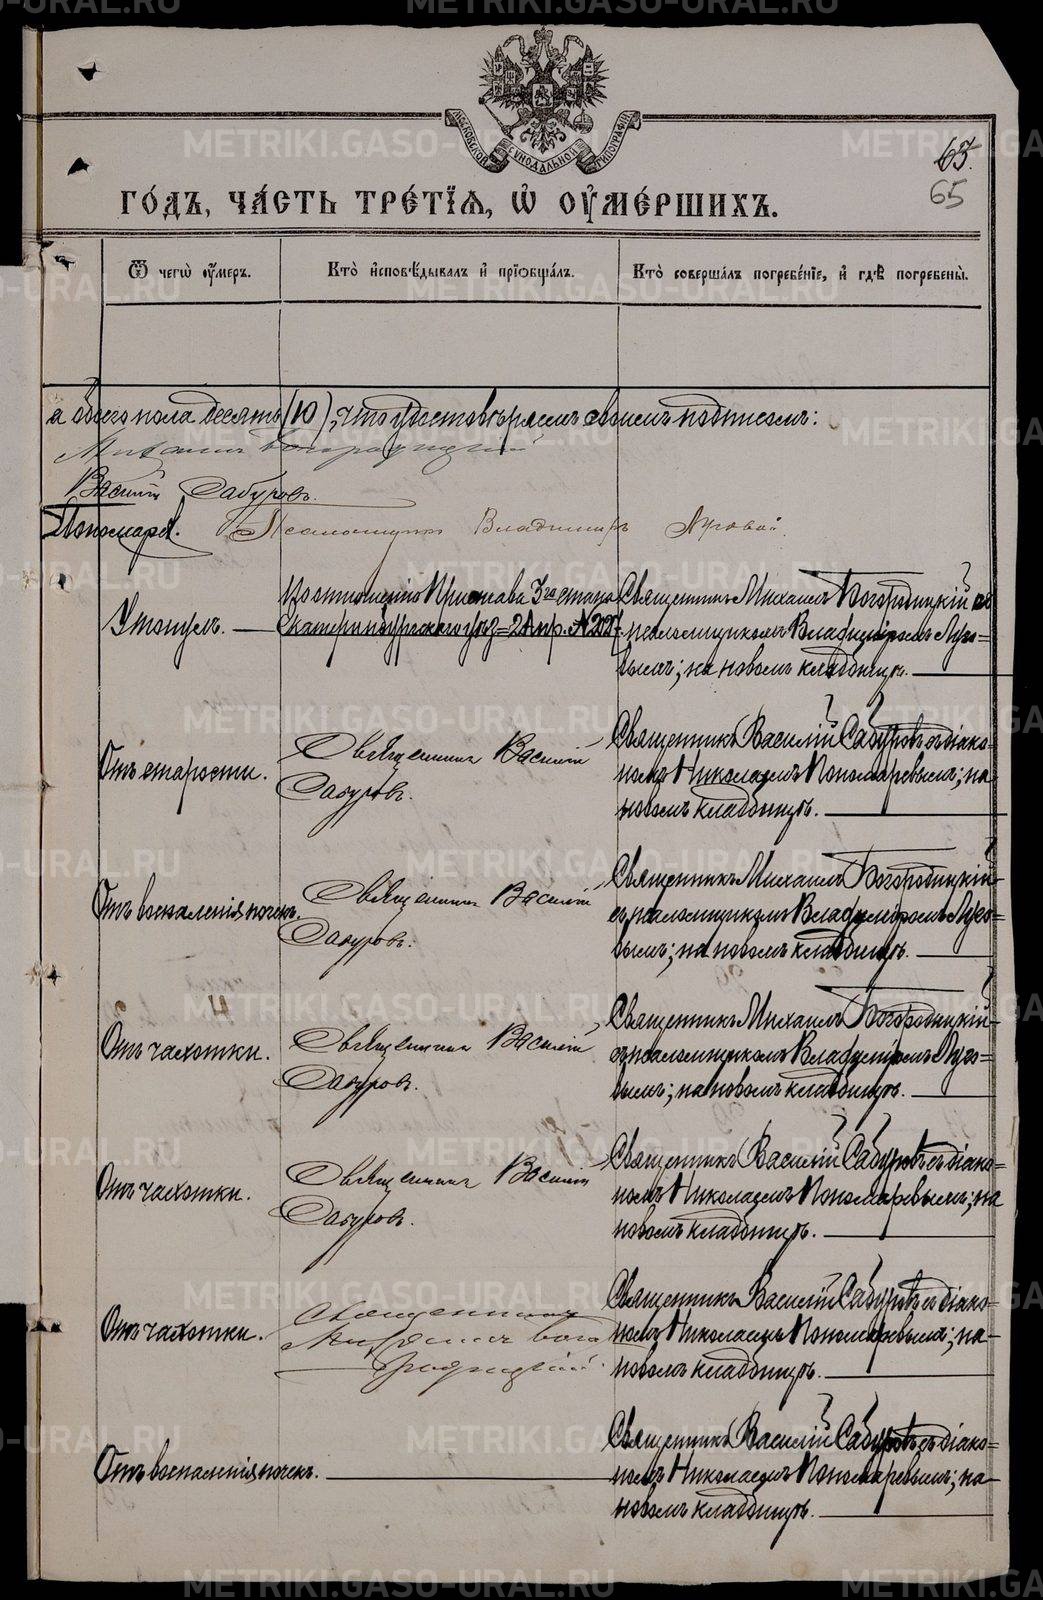 МОСКОВСКОЙ СѴНОДАЛЬНОЙ ТИПОГРАФІИ
63.
65
ГО́ДЪ, ЧА́СТЬ ТРЕ́ТІѦ, Ѡ҆ ОУ҆МЕ́РШИХЪ.
Ѿ чегѡ̀ оу҆́меръ.
Кто̀ и҆сповѣ́дывалъ и҆ прїѡбща́лъ.
Кто̀ соверша́лъ погребе́нїе, и҆ гдѣ̀ погребены̀.
а обоего пола десять (10), что удостовѣряемъ своимъ подписомъ:
Михаилъ Богородицкій
Василій Сабуровъ.
Пономарев.
Псаломщикъ Владиміръ Луговой.
Утонулъ.
По отношенію Пристава 3го стана
Екатеринбургскаго уѣз= 2 Апр. №
Священникъ Михаилъ Богородицкій съ
псаломщикомъ Владиміромъ Луго=
вымъ; на новомъ кладбищѣ.
Отъ старости.
Священникъ Василій
Сабуровъ.
Священникъ Василій Сабуровъ съ діако=
номъ Николаемъ Пономаревымъ; на
новомъ кладбищѣ.
Отъ воспаленія почек.
Священникъ Василій
Сабуровъ.
Священникъ Михаилъ Богородицкій
съ псаломщикомъ Владиміромъ Луго=
вымъ; на новомъ кладбищѣ.
Отъ чахотки.
Священникъ Василій
Сабуровъ.
Священникъ Михаилъ Богородицкій
съ псаломщикомъ Владиміромъ Луго=
вымъ; на новомъ кладбищѣ.
Отъ чахотки.
Священникъ Василій
Сабуровъ.
Священникъ Василій Сабуровъ съ діако=
номъ Николаемъ Пономаревымъ; на
новомъ кладбищѣ.
Отъ чахотки.
Священникъ
Михаилъ Бого
родицкій.
Священникъ Василій Сабуровъ съ діако=
номъ Николаемъ Пономаревымъ; на
новомъ кладбищѣ.
Отъ воспаленія почек.
Священникъ Василій Сабуровъ съ діако=
номъ Николаемъ Пономаревымъ; на
новомъ кладбищѣ.
METRIKI.GASO-URAL.RU